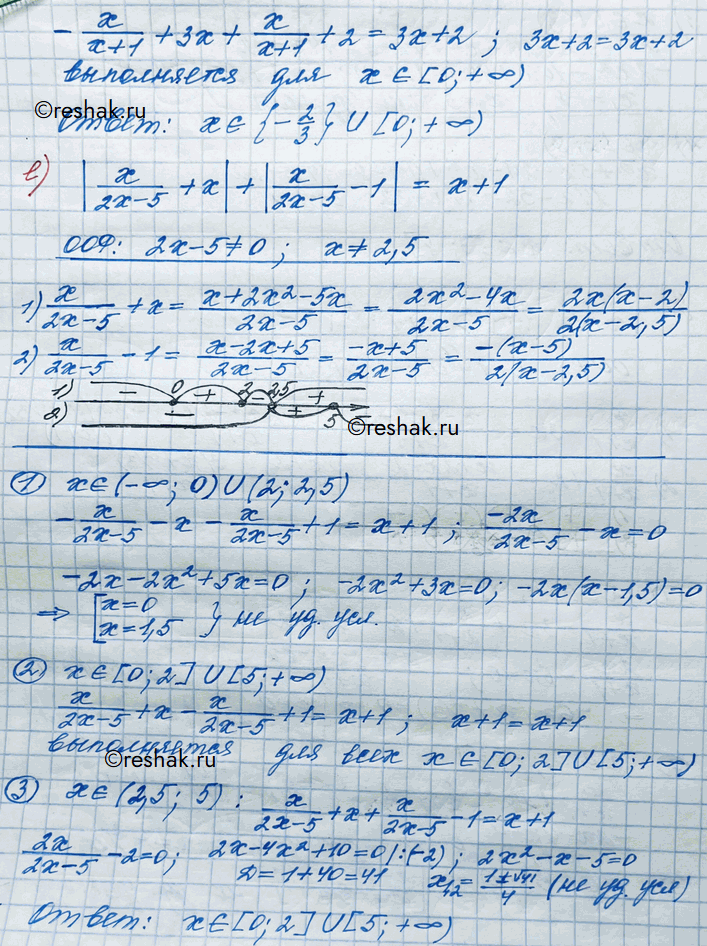 - x/(x+1) + 3x + x/(x+1) + 2 = 3x+2 ; 3x+2 = 3x+2
выполняется для x ∈ [0; +∞)
©reshak.ru
Ответ: x ∈ {-2/3} ∪ [0; +∞)
е) |x/(2x-5) + x| + |x/(2x-5) - 1| = x+1
ООФ: 2x-5≠0 ; x≠2,5
1) x/(2x-5) + x = (x+2x²-5x)/(2x-5) = (2x²-4x)/(2x-5) = 2x(x-2)/2(x-2,5)
2) x/(2x-5) - 1 = (x-2x+5)/(2x-5) = (-x+5)/(2x-5) = -(x-5)/2(x-2,5)
1) - 0 + 2 - 2,5 +
2) - + 5 -
©reshak.ru
① x ∈ (-∞; 0) ∪ (2; 2,5)
- x/(2x-5) - x - x/(2x-5) + 1 = x+1 ; -2x/(2x-5) - x = 0
-2x-2x²+5x=0 ; -2x²+3x=0; -2x(x-1,5)=0
⇒ [x=0
x=1,5 } не уд. усл.
② x ∈ [0; 2] ∪ [5; +∞)
x/(2x-5) + x - x/(2x-5) + 1 = x+1 ; x+1 = x+1
выполняется для всех x ∈ [0; 2] ∪ [5; +∞)
©reshak.ru
③ x ∈ (2,5; 5) : x/(2x-5) + x + x/(2x-5) - 1 = x+1
2x/(2x-5) - 2=0; 2x-4x²+10=0 |:(-2) ; 2x²-x-5=0
D=1+40=41 x₁,₂ = (1±√41)/4 (не уд. усл)
Ответ: x ∈ [0; 2] ∪ [5; +∞)